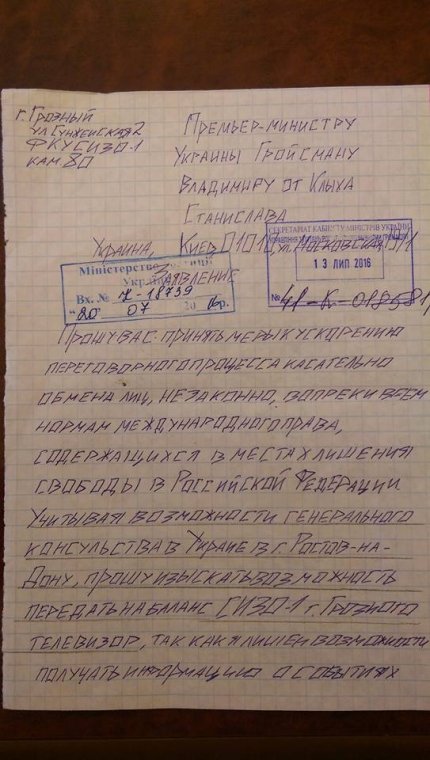 г. Грозный
ул Сунженская 2
ФКУ СИЗО-1
кам. 80
Премьер-министру
Украины Гройсману
Владимиру от Клыха
Станислава
Украина, Киев 0101, ул. Московская
Заявление
СЕКРЕТАРІАТ КАБІНЕТУ МІНІСТРІВ УКРАЇНИ
13 ЛИП 2016
№ 41-К-018581
Міністерство
Укр
Вх. № 18739
"20" 07 20 р.
Прошу вас принять меры к ускорению
переговорного процесса касательно
обмена лиц, незаконно, вопреки всем
нормам международного права,
содержащихся в местах лишения
свободы в Российской Федерации
Учитывая возможности генерального
консульства в Украие в г. Ростов-на-
Дону, прошу изыскать возможность
передать на баланс СИЗО-1 г. Грозного
телевизор, так как я лишен возможности
получать информацию о событиях